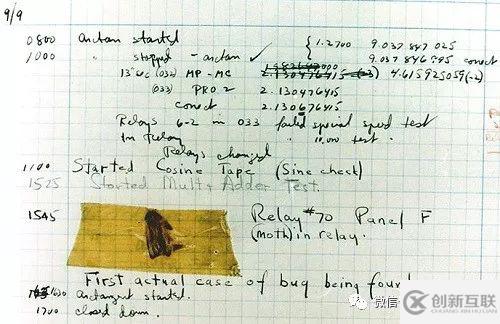 9/9
0800 Antan started
1000 " stopped - antan ✓ { 1.2700 9.037 847 025
9.037 846 995 correct
13"uc (032) MP-MC 2.130476415 (-3) 4.615925059(-2)
(033) PRO 2 2.130476415
correct 2.130676415
Relays 6-2 in 033 failed special speed test
In Relay " 10.000 test.
Relays changed
1100 Started Cosine Tape (Sine check)
1525 Started Mult+Adder Test.
1545 Relay #70 Panel F
(moth) in relay.
First actual case of bug being found
1630 Antangent started.
1700 closed down.
微信
创新互联